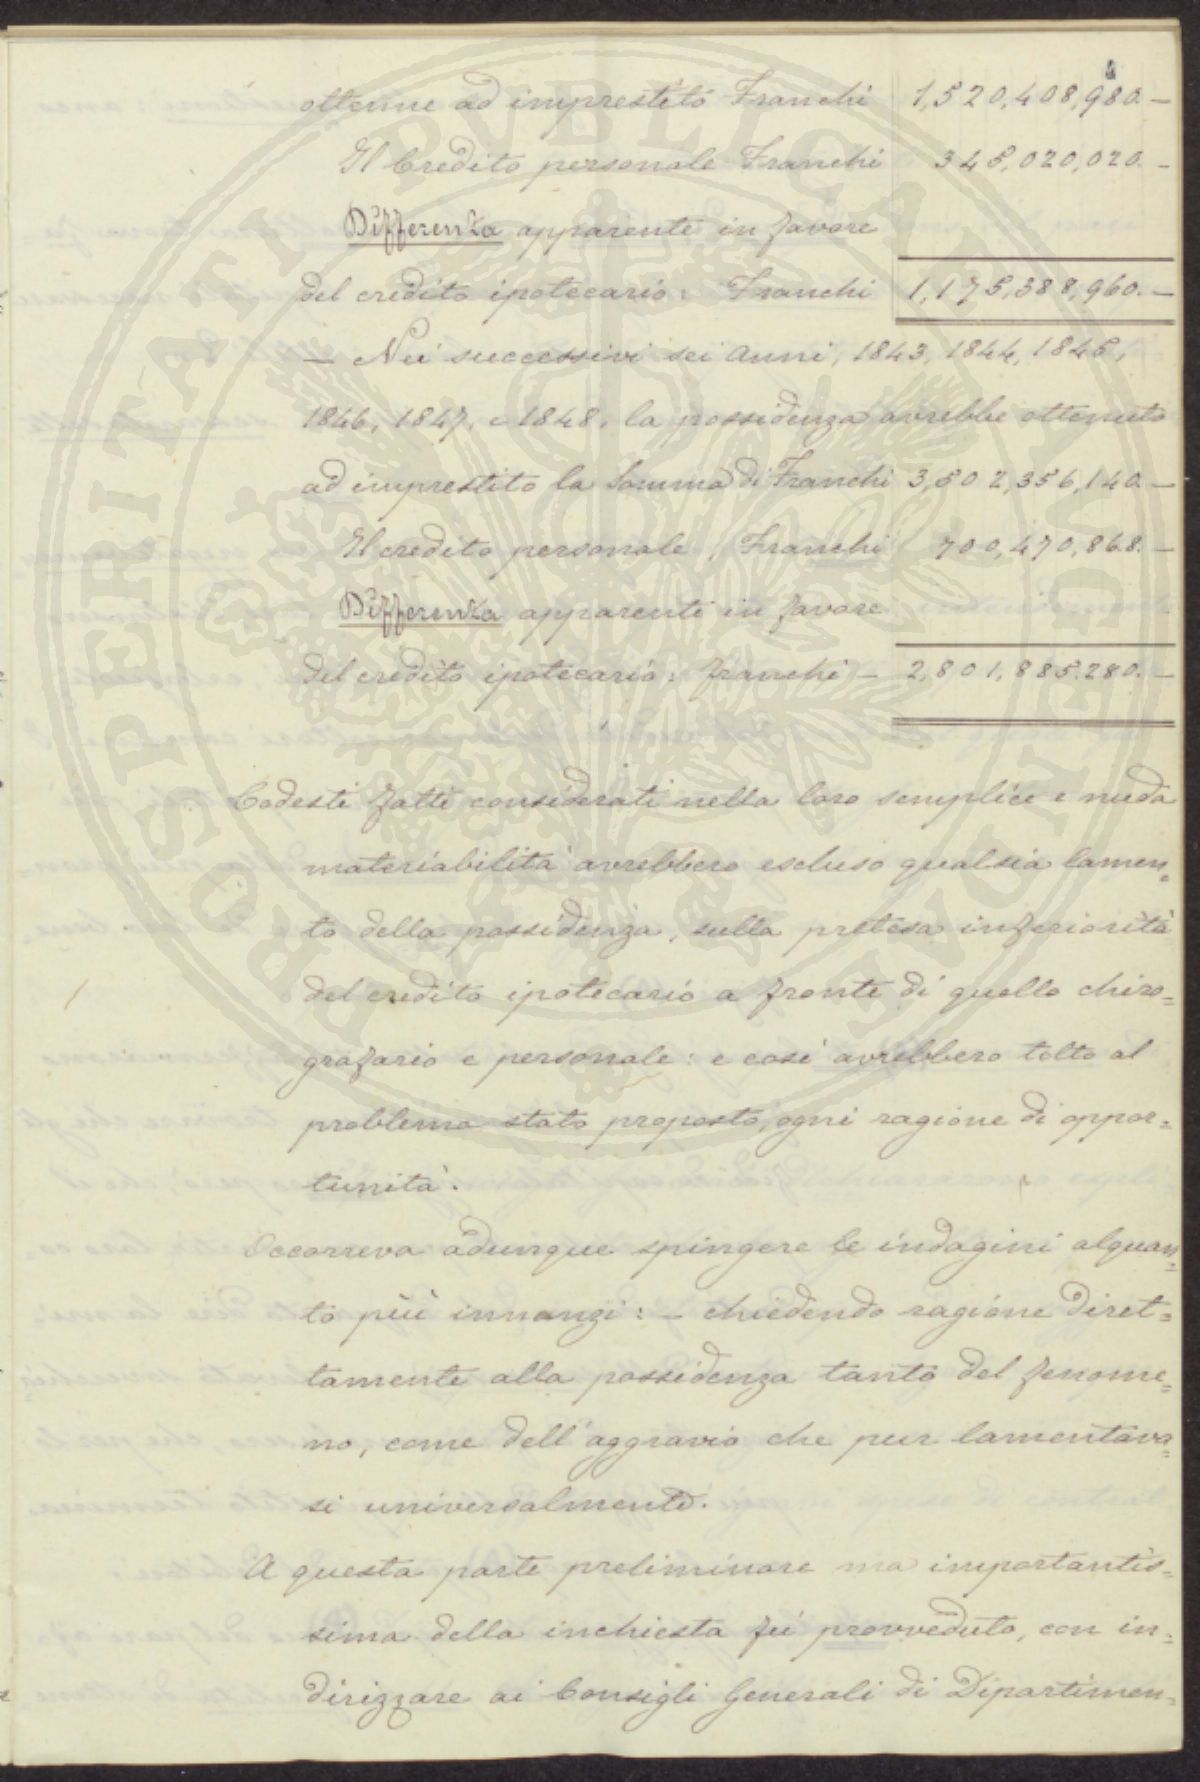 ottenne ad imprestito Franchi 1,520,408,980.—
Il Credito personale Franchi 345,020,020.—
Differenza apparente in favore
del credito ipotecario: Franchi 1,175,388,960.—
— Nei successivi sei anni, 1843, 1844, 1845,
1846, 1847, e 1848, la possidenza avrebbe ottenuto
ad imprestito la Somma di Franchi 3,502,356,140.—
Il credito personale, Franchi 700,470,868.—
Differenza apparenti in favore
del credito ipotecario: franchi — 2,801,885.280.—
Codesti fatti considerati nella loro semplice e nuda
materiabilità avrebbero escluso qualsia lamen=
to della possidenza, sulla pretesa inferiorità
del credito ipotecario a fronte di quello chiro=
grafario e personale: e così avrebbero tolto al
problema stato proposto, ogni ragione di oppor=
tunità.
Occorreva adunque spingere le indagini alquan=
to più innanzi: — chiedendo ragione diret=
tamente alla possidenza tanto del fenome=
no, come dell'aggravio che pur lamentava=
si universalmente.
A questa parte preliminare ma importantis=
sima della inchiesta fù provveduto, con in=
dirizzare ai Consigli Generali di Dipartimen=
PROSPERITATI PVBLICAE AVGENDAE